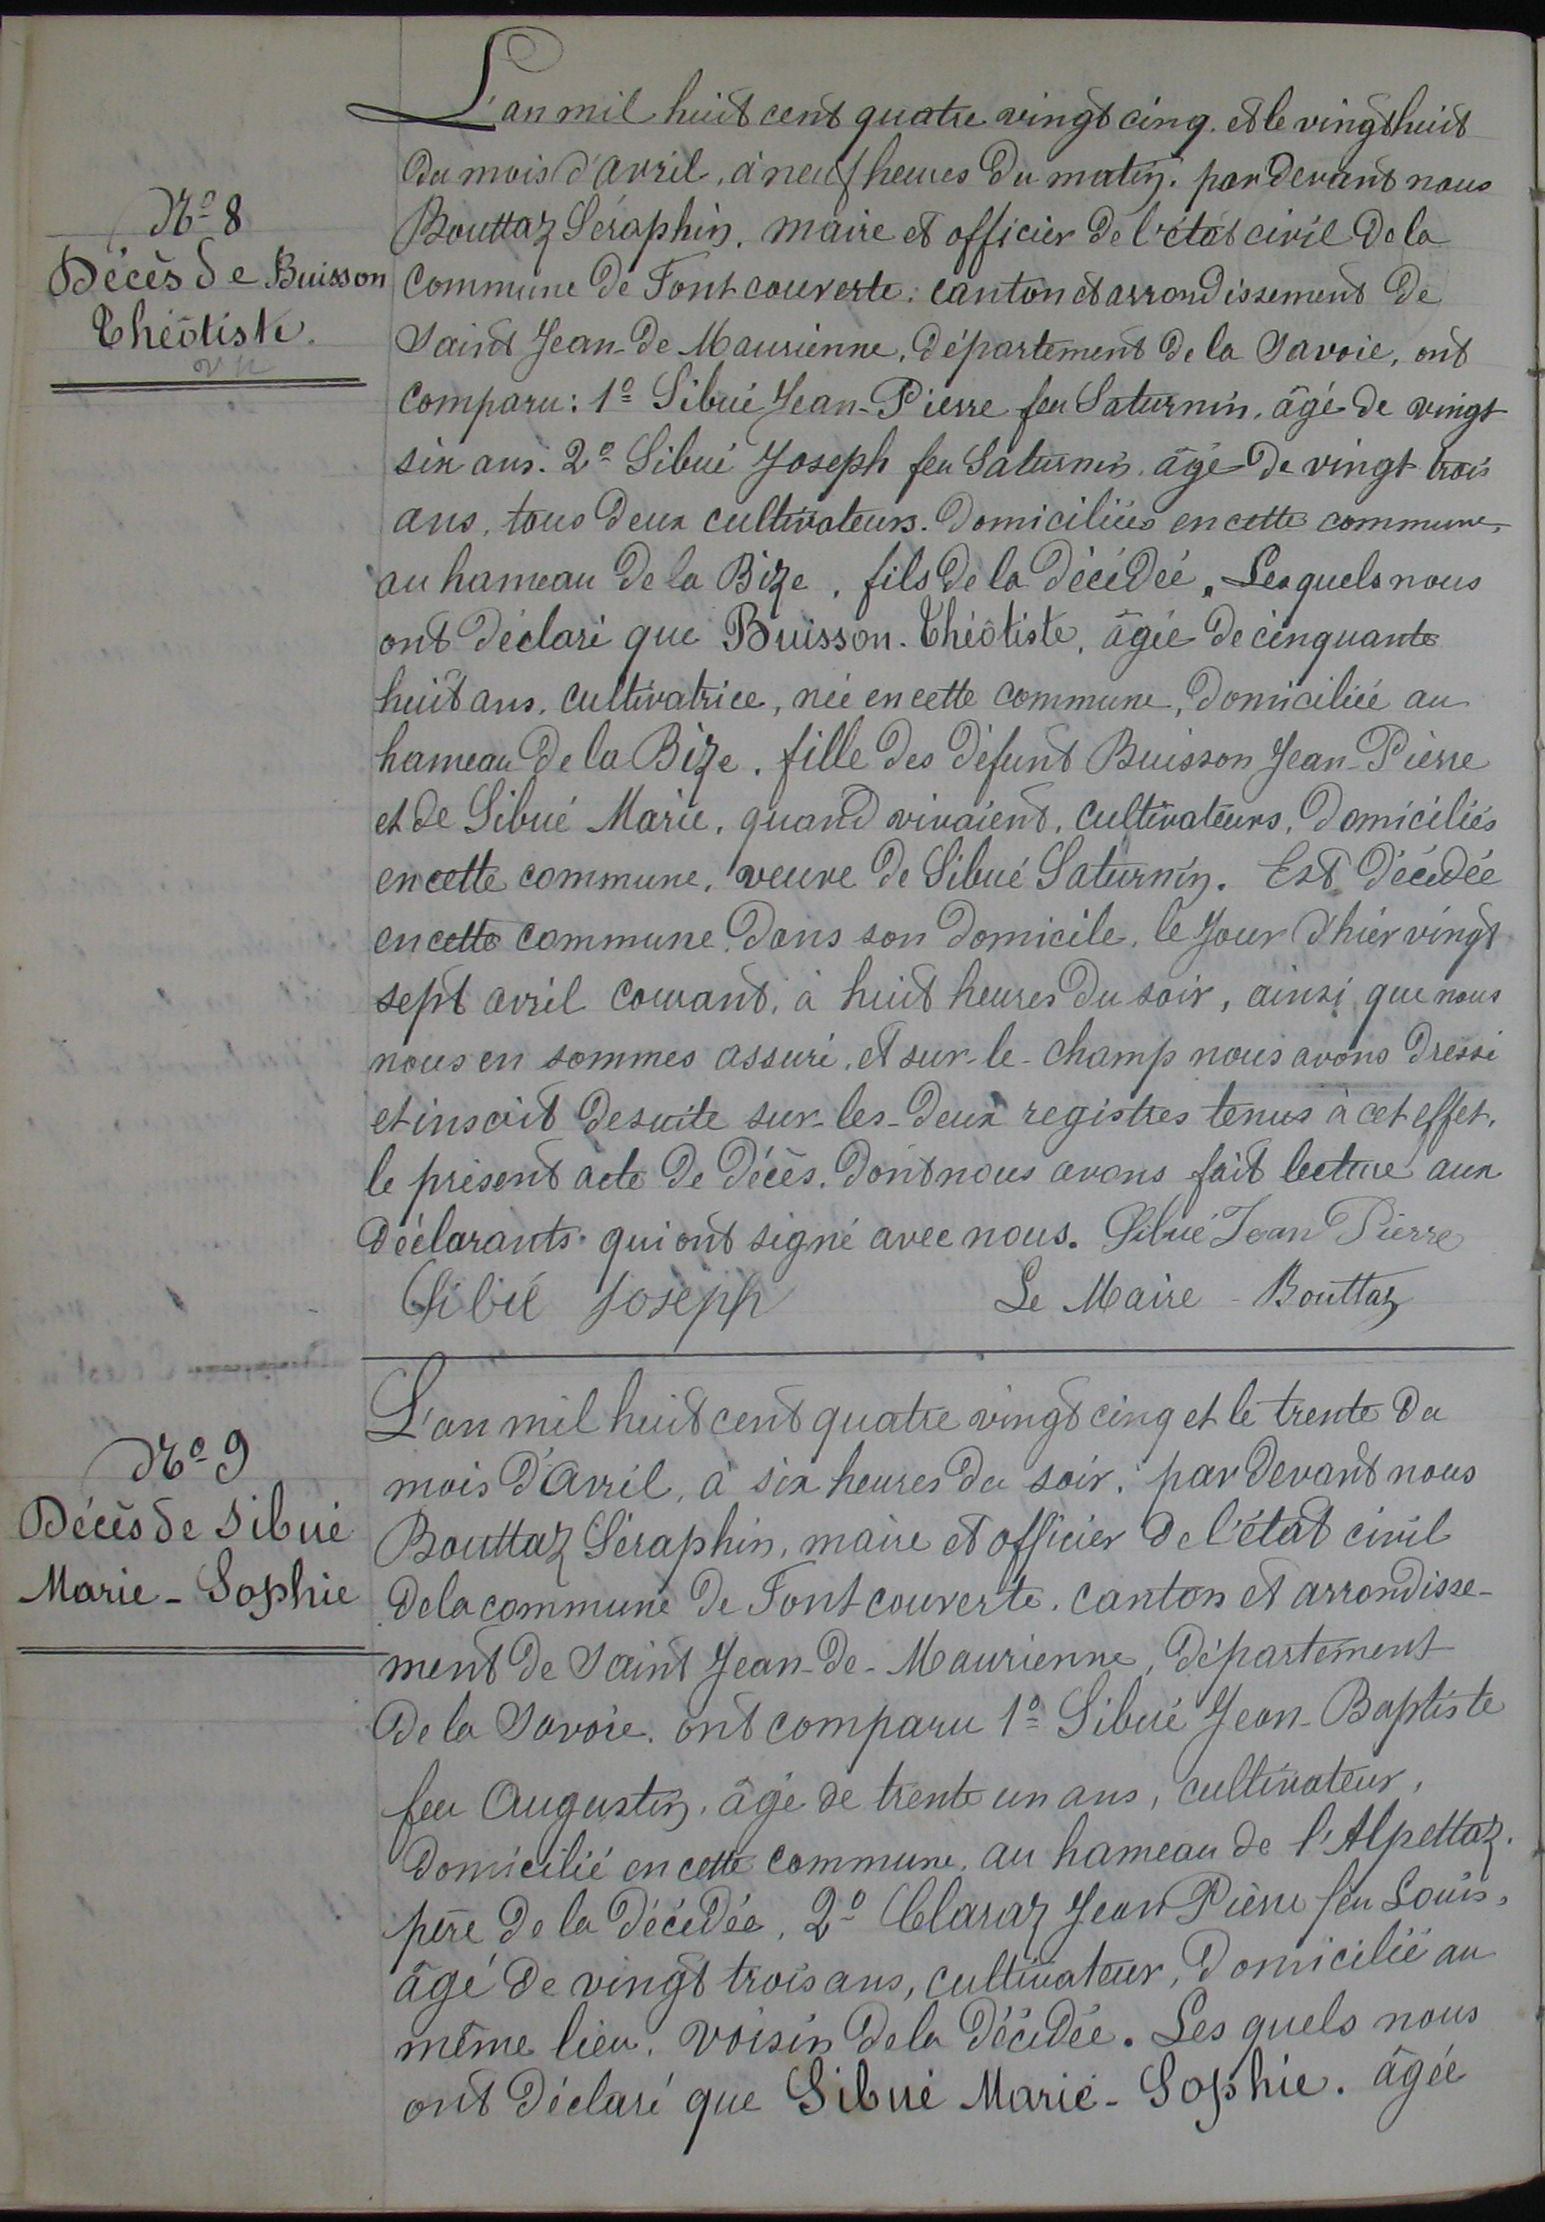 L'an mil huit cent quatre vingt cinq. et le vingt huit
du mois d'avril, à neuf heures du matin. par devant nous
Nº 8
Bouttaz Séraphin, maire et officier de l'état civil de la
Décès de Buisson
Théotiste.
vu
commune de Fontcouverte, canton et arrondissement de
Saint Jean-de Maurienne, département de la Savoie, ont
comparu: 1º Sibué Jean-Pierre feu Saturnin, âgé de vingt
six ans. 2º Sibué Joseph feu Saturnin, âgé de vingt trois
ans, tous deux cultivateurs. domiciliés en cette commune,
au hameau de la Bize, fils de la décédée. Lesquels nous
ont déclaré que Buisson. Théotiste, âgée de cinquante
huit ans, cultivatrice, née en cette commune, domiciliée au
hameau de la Bize. fille des défunt Buisson Jean-Pierre
et de Sibué Marie, quand vivaient, cultivateurs, domiciliés
en cette commune, veuve de Sibué Saturnin. Est décédée
en cette commune dans son domicile, le jour d'hier vingt
sept avril courant, à huit heures du soir, ainsi que nous
nous en sommes assuré, et sur-le-champ nous avons dressé
et inscrit desuite sur-les-deux registres tenus à cet effet,
le présent acte de décès, dont nous avons fait lecture aux
déclarants qui ont signé avec nous. Sibué Jean Pierre
Sibué Joseph Le Maire - Bouttaz
L'an mil huit cent quatre vingt cinq et le trente du
Nº 9
Décès de Sibué
Marie - Sophie
mois d'Avril, à six heures du soir, par devant nous
Bouttaz Séraphin, maire et officier de l'état civil
de la commune de Fontcouverte, canton et arrondisse-
ment de Saint Jean-de-Maurienne, département
de la Savoie, ont comparu 1º Sibué Jean-Baptiste
feu Augustin, âgé de trente un ans, cultivateur,
domicilié en cette commune, au hameau de l'Alpettaz.
père de la décédée, 2º Claraz Jean Pierre feu Louis,
âgé de vingt trois ans, cultivateur, domicilié au
même lieu, voisin de la décédée. Les quels nous
ont déclaré que Sibué Marie-Sophie. âgée